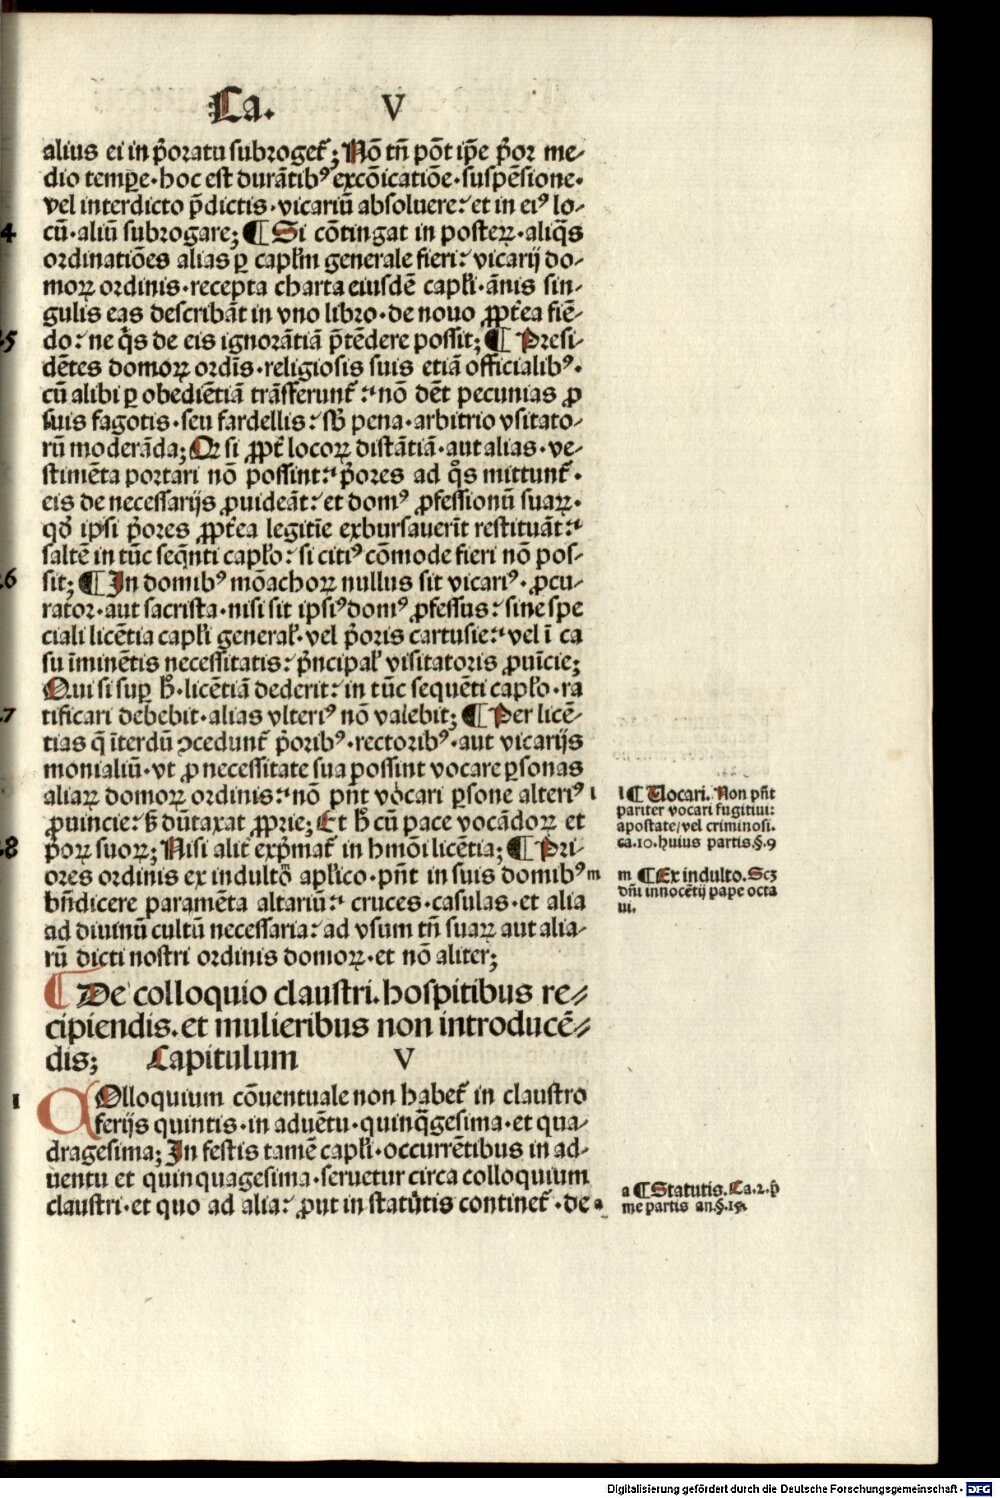 Ca. V
alius ei in p̄oratu subroget᷑; Nō tn̄ pōt ip̄e p̄or me⸗
dio temꝑe·hoc est durātibꝰ excōicatiōe·suspēsione·
vel interdicto p̄dictis·vicariū absoluere:et in eiꝰ lo⸗
4 cū·aliū subrogare; ¶ Si cōtingat in posteꝝ·aliq̄s
ordinatiōes alias ꝑ capl̄m generale fieri:vicarij do⸗
moꝝ ordinis·recepta charta eiusdē capl̄i·ānis sin⸗
gulis eas describāt in vno libro·de nouo ꝓpt̄ea fiē⸗
5 do:ne q̄s de eis ignorātiā p̄tēdere possit; ¶ Presi⸗
dētes domoꝝ ordīs·religiosis suis etiā officialibꝰ·
cū alibi ꝑ obediētiā trāsferunt᷑:nō dēt pecunias ꝓ
suis fagotis·seu fardellis:sb̄ pena·arbitrio visitato⸗
rū moderāda; Qꝛ si ꝓpt̄ locoꝝ distātiā·aut alias·ve⸗
stimēta portari nō possint:p̄ores ad q̊s mittunt᷑·
eis de necessarijs ꝓuideāt:et domꝰ ꝓfessionū suaꝝ·
qd̄ ipsi p̄ores ꝓpt̄ea legitīe exbursauerīt restituāt:
saltē in tūc seq̄nti capl̄o:si citiꝰ cōmode fieri nō pos⸗
6 sit; ¶ In domibꝰ mōachoꝝ nullus sit vicariꝰ·ꝓcu⸗
rator·aut sacrista·nisi sit ipsiꝰ domꝰ ꝓfessus:sine spe
ciali licētia capl̄i general̄·vel p̄oris cartusie:vel ī ca
su īminētis necessitatis:p̄ncipal̄ visitatoris ꝓuīcie;
Qui si suꝑ h̄·licētiā dederit:in tūc sequēti capl̄o·ra
7 tificari debebit·alias vlteriꝰ nō valebit; ¶ Per licē⸗
tias q̄ īterdū ↄcedunt᷑ p̄oribꝰ·rectoribꝰ·aut vicarijs
monialiū·vt ꝓ necessitate sua possint vocare ꝑsonas
aliaꝝ domoꝝ ordinis:nō pn̄t vocari ꝑsone alteriꝰ l
ꝓuincie:s̄ dūtaxat ꝓprie; Et h̄ cū pace vocādoꝝ et
8 p̄oꝝ suoꝝ; Nisi alit᷑ exp̄mat᷑ in hmōi licētia; ¶ Pri⸗
ores ordinis ex indulto apl̄ico·pn̄t in suis domibꝰ m
bn̄dicere paramēta altariū: cruces·casulas·et alia
ad diuinū cultū necessaria:ad vsum tn̄ suaꝝ aut alia⸗
rū dicti nostri ordinis domoꝝ·et nō aliter;
¶ De colloquio claustri.hospitibus re⸗
cipiendis.et mulieribus non introducē⸗
dis; Capitulum V
1 COlloquium cōuentuale non habet᷑ in claustro
ferijs quintis·in aduētu·quinq̄gesima·et qua⸗
dragesima; In festis tamē capl̄i·occurrētibus in ad⸗
uentu et quinquagesima·seruetur circa colloquium
claustri·et quo ad alia:ꝓut in statutis continet᷑·de a
l ¶ Uocari. Non pn̄t
pariter vocari fugitiui:
apostate/vel criminosi.
ca.10.huius partis.§.9
m ¶ Ex indulto. Scꝫ
dn̄i innocētij pape octa
ui.
a ¶ Statutis. Ca.2.p̄
me partis an.§.15.
Digitalisierung gefördert durch die Deutsche Forschungsgemeinschaft - DFG